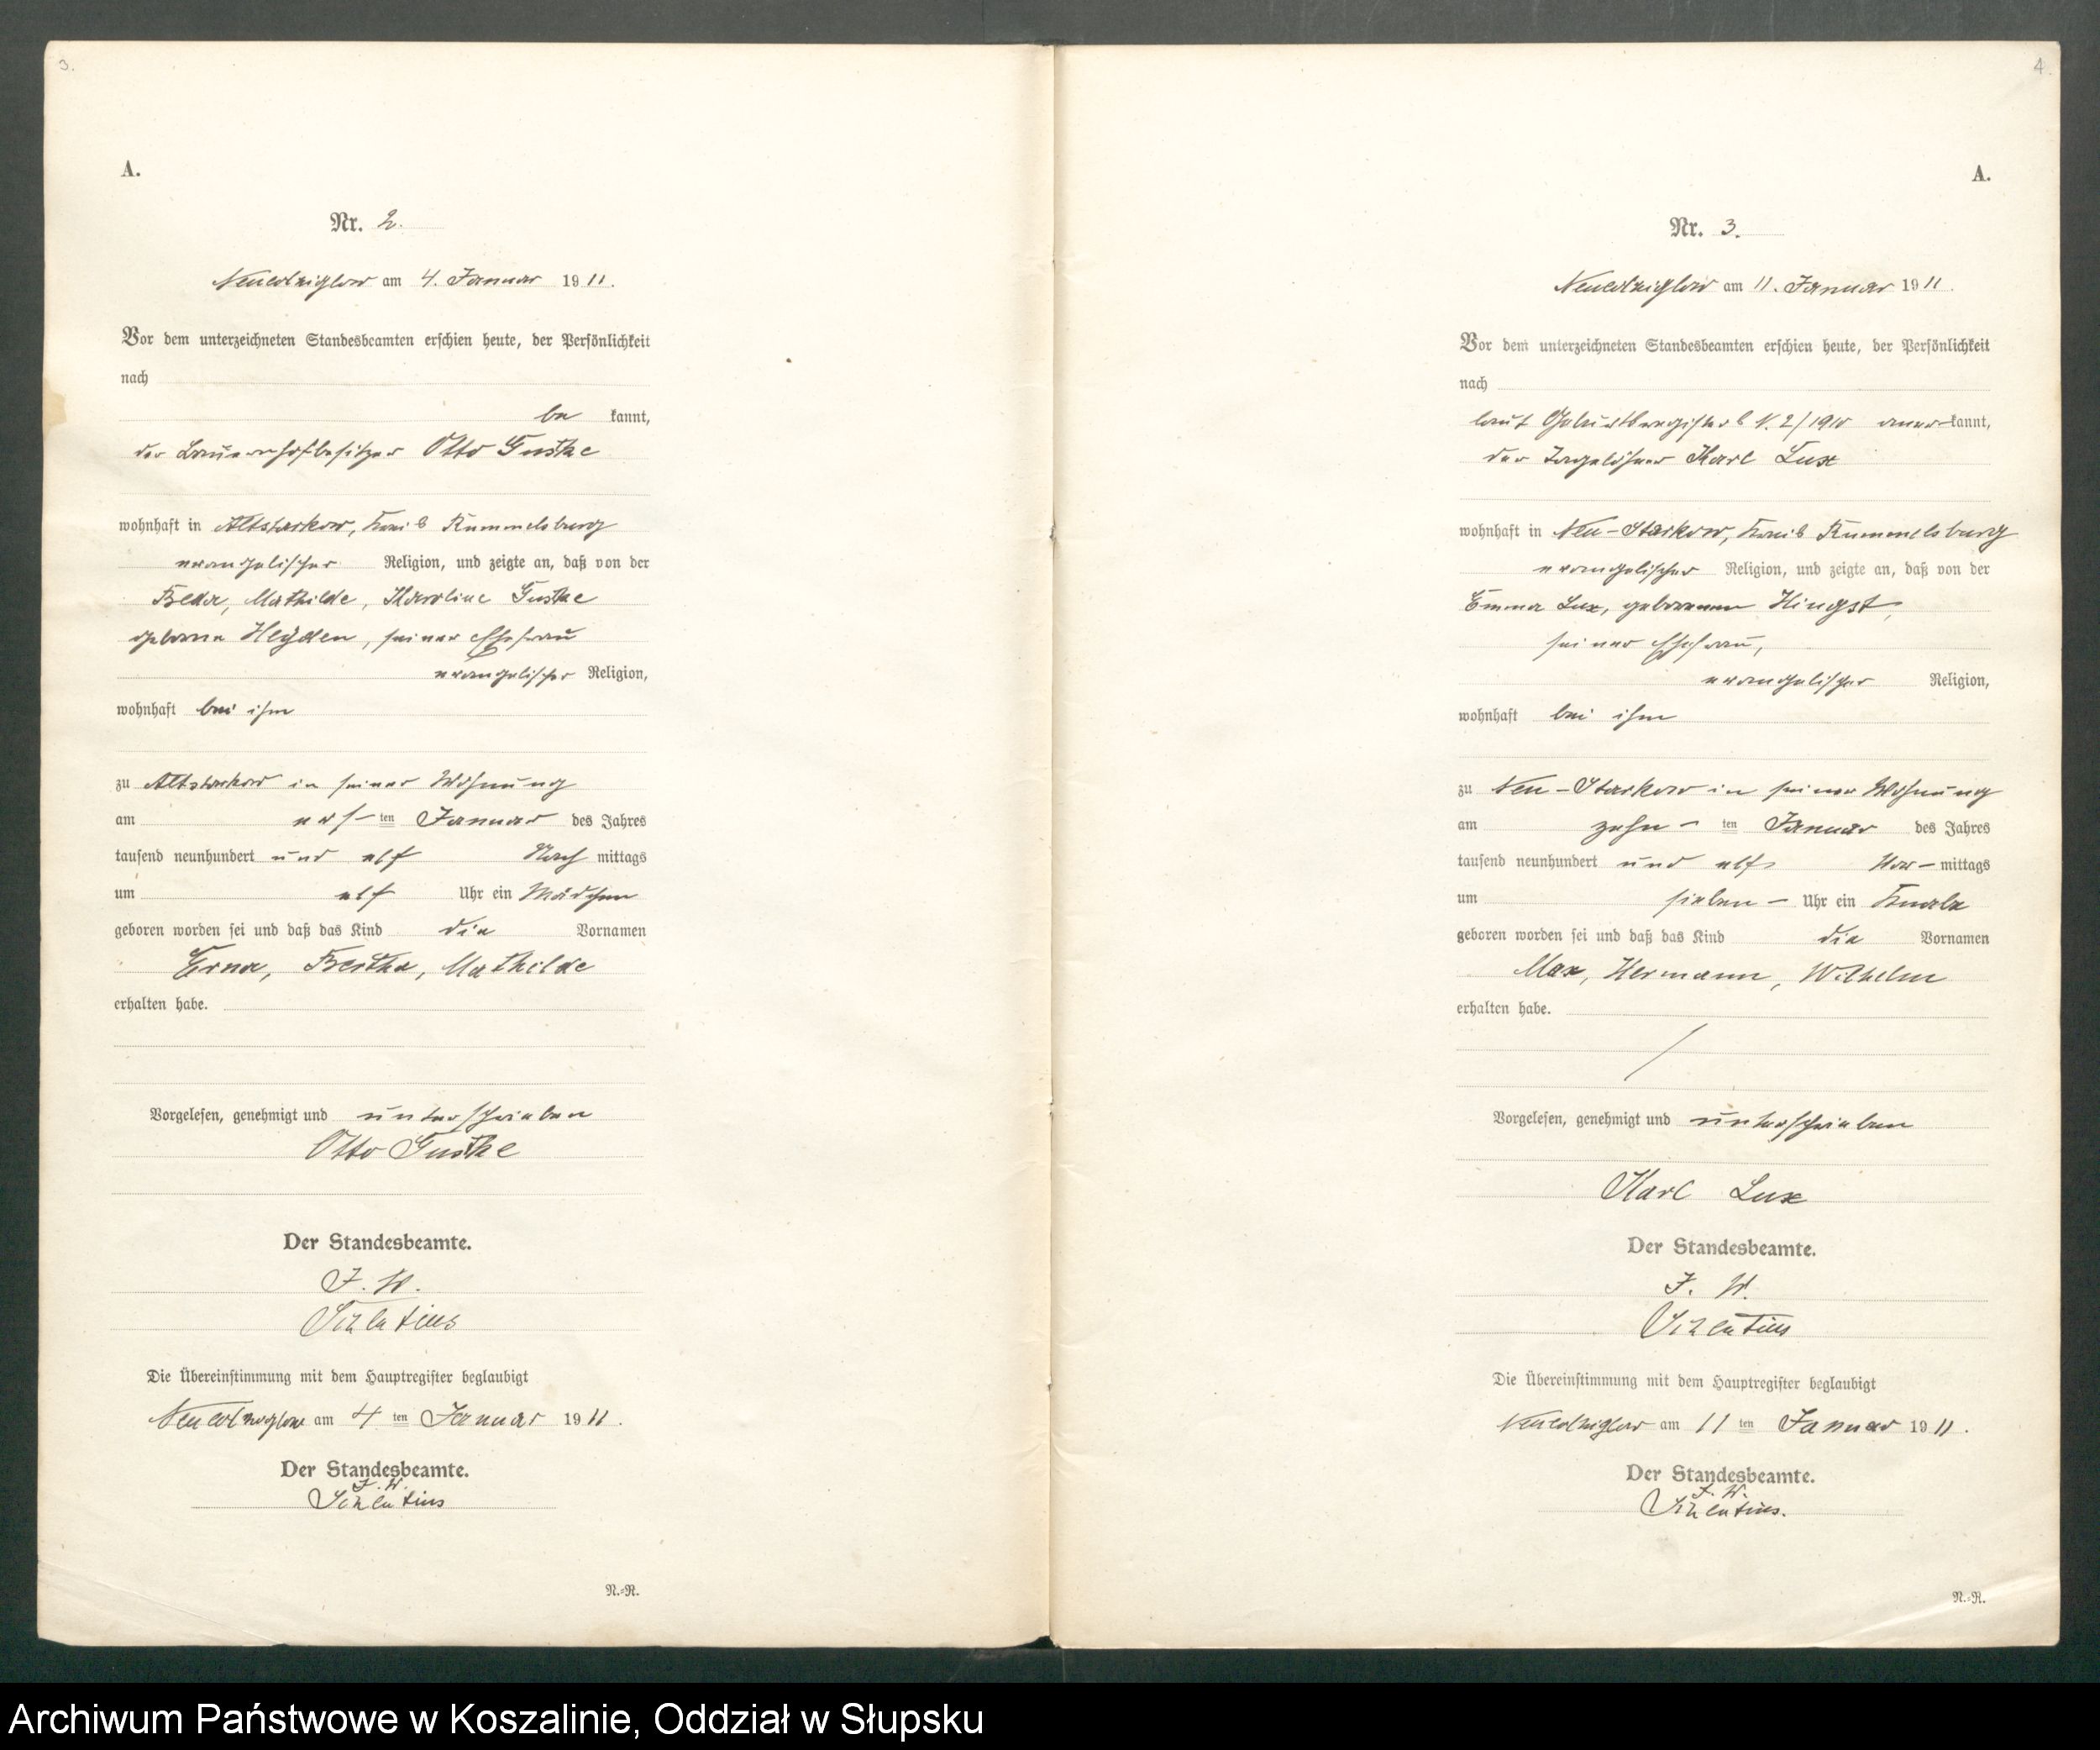 3.
A.
Nr. 2.
Neukolziglow am 4. Januar 1911.
Vor dem unterzeichneten Standesbeamten erschien heute, der Persönlichkeit
nach
be kannt,
der Bauernhofbesitzer Otto Guske
wohnhaft in Altstarkow, Kreis Rummelsburg
evangelischer Religion, und zeigte an, daß von der
Mathilde, Karoline Guske
geborne Heyden, seiner Ehefrau
evangelischer Religion,
wohnhaft bei ihm
zu Altstarkow in seiner Wohnung
am ersten Januar des Jahres
tausend neunhundert und elf Nach mittags
um elf Uhr ein Mädchen
geboren worden sei und daß das Kind die Vornamen
Erna, Bertha, Mathilde
erhalten habe.
Vorgelesen, genehmigt und unterschrieben
Otto Guske
Der Standesbeamte.
J. V.
Die Übereinstimmung mit dem Hauptregister beglaubigt
Neukolziglow am 4 ten Januar 1911.
Der Standesbeamte.
J. V.
N.=R.
4.
A.
Nr. 3.
Neukolziglow am 11. Januar 1911.
Vor dem unterzeichneten Standesbeamten erschien heute, der Persönlichkeit
nach
laut Geburtsregisters N. 2/1910 aner-kannt,
der Tagelöhner Karl Lux
wohnhaft in Neu-Starkow, Kreis Rummelsburg
evangelischer Religion, und zeigte an, daß von der
Emma Lux, geborenen Hingst,
seiner Ehefrau,
evangelischer Religion,
wohnhaft bei ihm
zu Neu-Starkow in seiner Wohnung
am zehn- ten Januar des Jahres
tausend neunhundert und elf Vor- mittags
um sieben - Uhr ein Knabe
geboren worden sei und daß das Kind die Vornamen
Max, Hermann, Wilhelm
erhalten habe.
Vorgelesen, genehmigt und unterschrieben
Karl Lux
Der Standesbeamte.
J. V.
Die Übereinstimmung mit dem Hauptregister beglaubigt
Neukolziglow am 11 ten Januar 1911.
Der Standesbeamte.
J. V.
N.=R.
Archiwum Państwowe w Koszalinie, Oddział w Słupsku